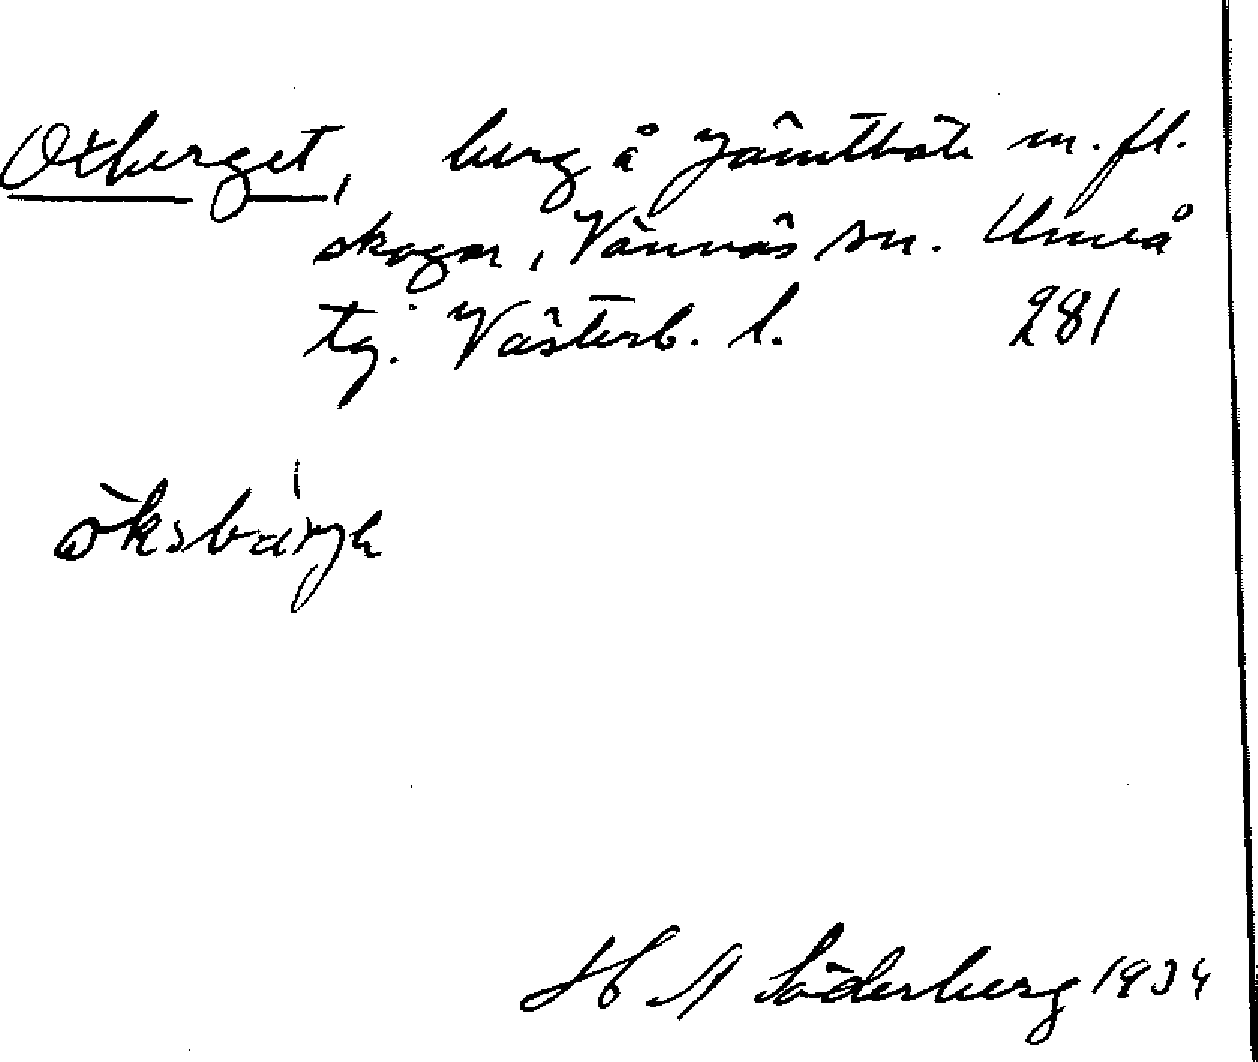 Oxberget, berg å Jämtböle m. fl.
skogar, Vännäs sn. Umeå
tg. Västerb. l. 281
öksbärje
H A Söderberg 1934